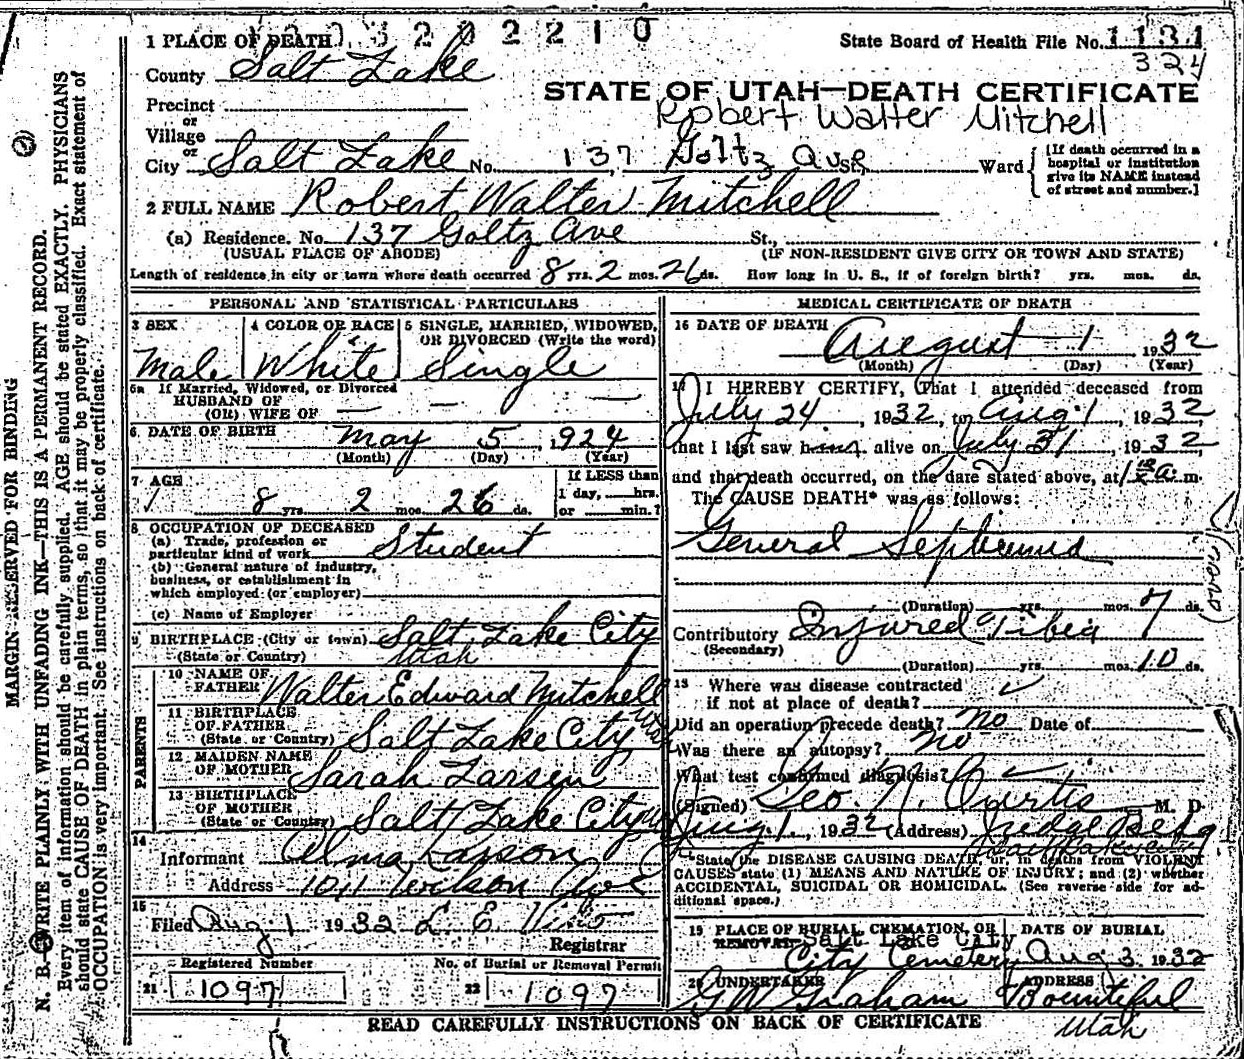 1 PLACE OF DEATH
20 3 2 0 2 2 1 0
State Board of Health File No. 1131
324
County Salt Lake
STATE OF UTAH—DEATH CERTIFICATE
Precinct
or
Village
Robert Walter Mitchell
or
City Salt Lake No. 137 Goltz Ave St., Ward
[If death occurred in a hospital or institution give its NAME instead of street and number.]
2 FULL NAME Robert Walter Mitchell
(a) Residence. No. 137 Goltz Ave St.,
(USUAL PLACE OF ABODE) (IF NON-RESIDENT GIVE CITY OR TOWN AND STATE)
Length of residence in city or town where death occurred 8 yrs. 2 mos. 26 ds. How long in U. S., if of foreign birth? yrs. mos. ds.
PERSONAL AND STATISTICAL PARTICULARS
3 SEX
Male
4 COLOR OR RACE
White
5 SINGLE, MARRIED, WIDOWED,
OR DIVORCED (Write the word)
Single
5a If Married, Widowed, or Divorced
HUSBAND OF
(OR) WIFE OF — — —
6 DATE OF BIRTH May 5, 1924
(Month) (Day) (Year)
7 AGE
8 yrs. 2 mos. 26 ds.
If LESS than
1 day, hrs.
or min.?
8 OCCUPATION OF DECEASED
(a) Trade, profession or
particular kind of work Student
(b) General nature of industry,
business, or establishment in
which employed (or employer)
(c) Name of Employer
9 BIRTHPLACE (City or town) Salt Lake City
(State or Country) Utah
PARENTS
10 NAME OF
FATHER Walter Edward Mitchell
11 BIRTHPLACE
OF FATHER
(State or Country) Salt Lake City Utah
12 MAIDEN NAME
OF MOTHER Sarah Larsen
13 BIRTHPLACE
OF MOTHER
(State or Country) Salt Lake City
14
Informant Alma Larson
Address 1011 Wilson Ave
15
Filed Aug 1 1932 L. E.
Registrar
Registered Number No. of Burial or Removal Permit
21 1097 22 1097
MEDICAL CERTIFICATE OF DEATH
16 DATE OF DEATH
August 1 1932
(Month) (Day) (Year)
17 I HEREBY CERTIFY, That I attended deceased from
July 24, 1932, to Aug. 1, 1932
that I last saw him alive on July 31, 1932
and that death occurred, on the date stated above, at a m.
The CAUSE DEATH* was as follows:
General Septicemia
(Duration) yrs. mos. 7 ds.
Contributory Injured Tibia
(Secondary)
(Duration) yrs. mos. 10 ds.
18 Where was disease contracted
if not at place of death?
Did an operation precede death? No Date of
Was there an autopsy? No
What test confirmed diagnosis?
(Signed) Geo. N. Curtis M. D.
Aug. 1, 1932 (Address) Judge Bldg
Salt Lake City
*State the DISEASE CAUSING DEATH, or, in deaths from VIOLENT
CAUSES state (1) MEANS AND NATURE OF INJURY; and (2) whether
ACCIDENTAL, SUICIDAL OR HOMICIDAL. (See reverse side for ad-
ditional space.)
19 PLACE OF BURIAL, CREMATION, OR
REMOVAL Salt Lake City
City Cemetery
DATE OF BURIAL
Aug 3 1932
20 UNDERTAKER
G W Graham
ADDRESS
Bountiful
Utah
READ CAREFULLY INSTRUCTIONS ON BACK OF CERTIFICATE
MARGIN RESERVED FOR BINDING
N. B.—WRITE PLAINLY WITH UNFADING INK—THIS IS A PERMANENT RECORD.
Every item of information should be carefully supplied. AGE should be stated EXACTLY. PHYSICIANS
should state CAUSE OF DEATH in plain terms, so that it may be properly classified. Exact statement of
OCCUPATION is very important. See instructions on back of certificate.